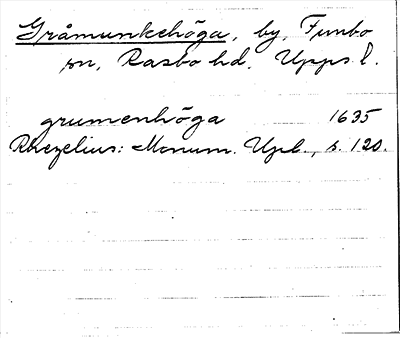 Gråmunkehöga, by, Funbo
sn, Rasbo hd, Upps. l.
grumenhöga 1635
Rhezelius: Monum. Upl., s. 120.